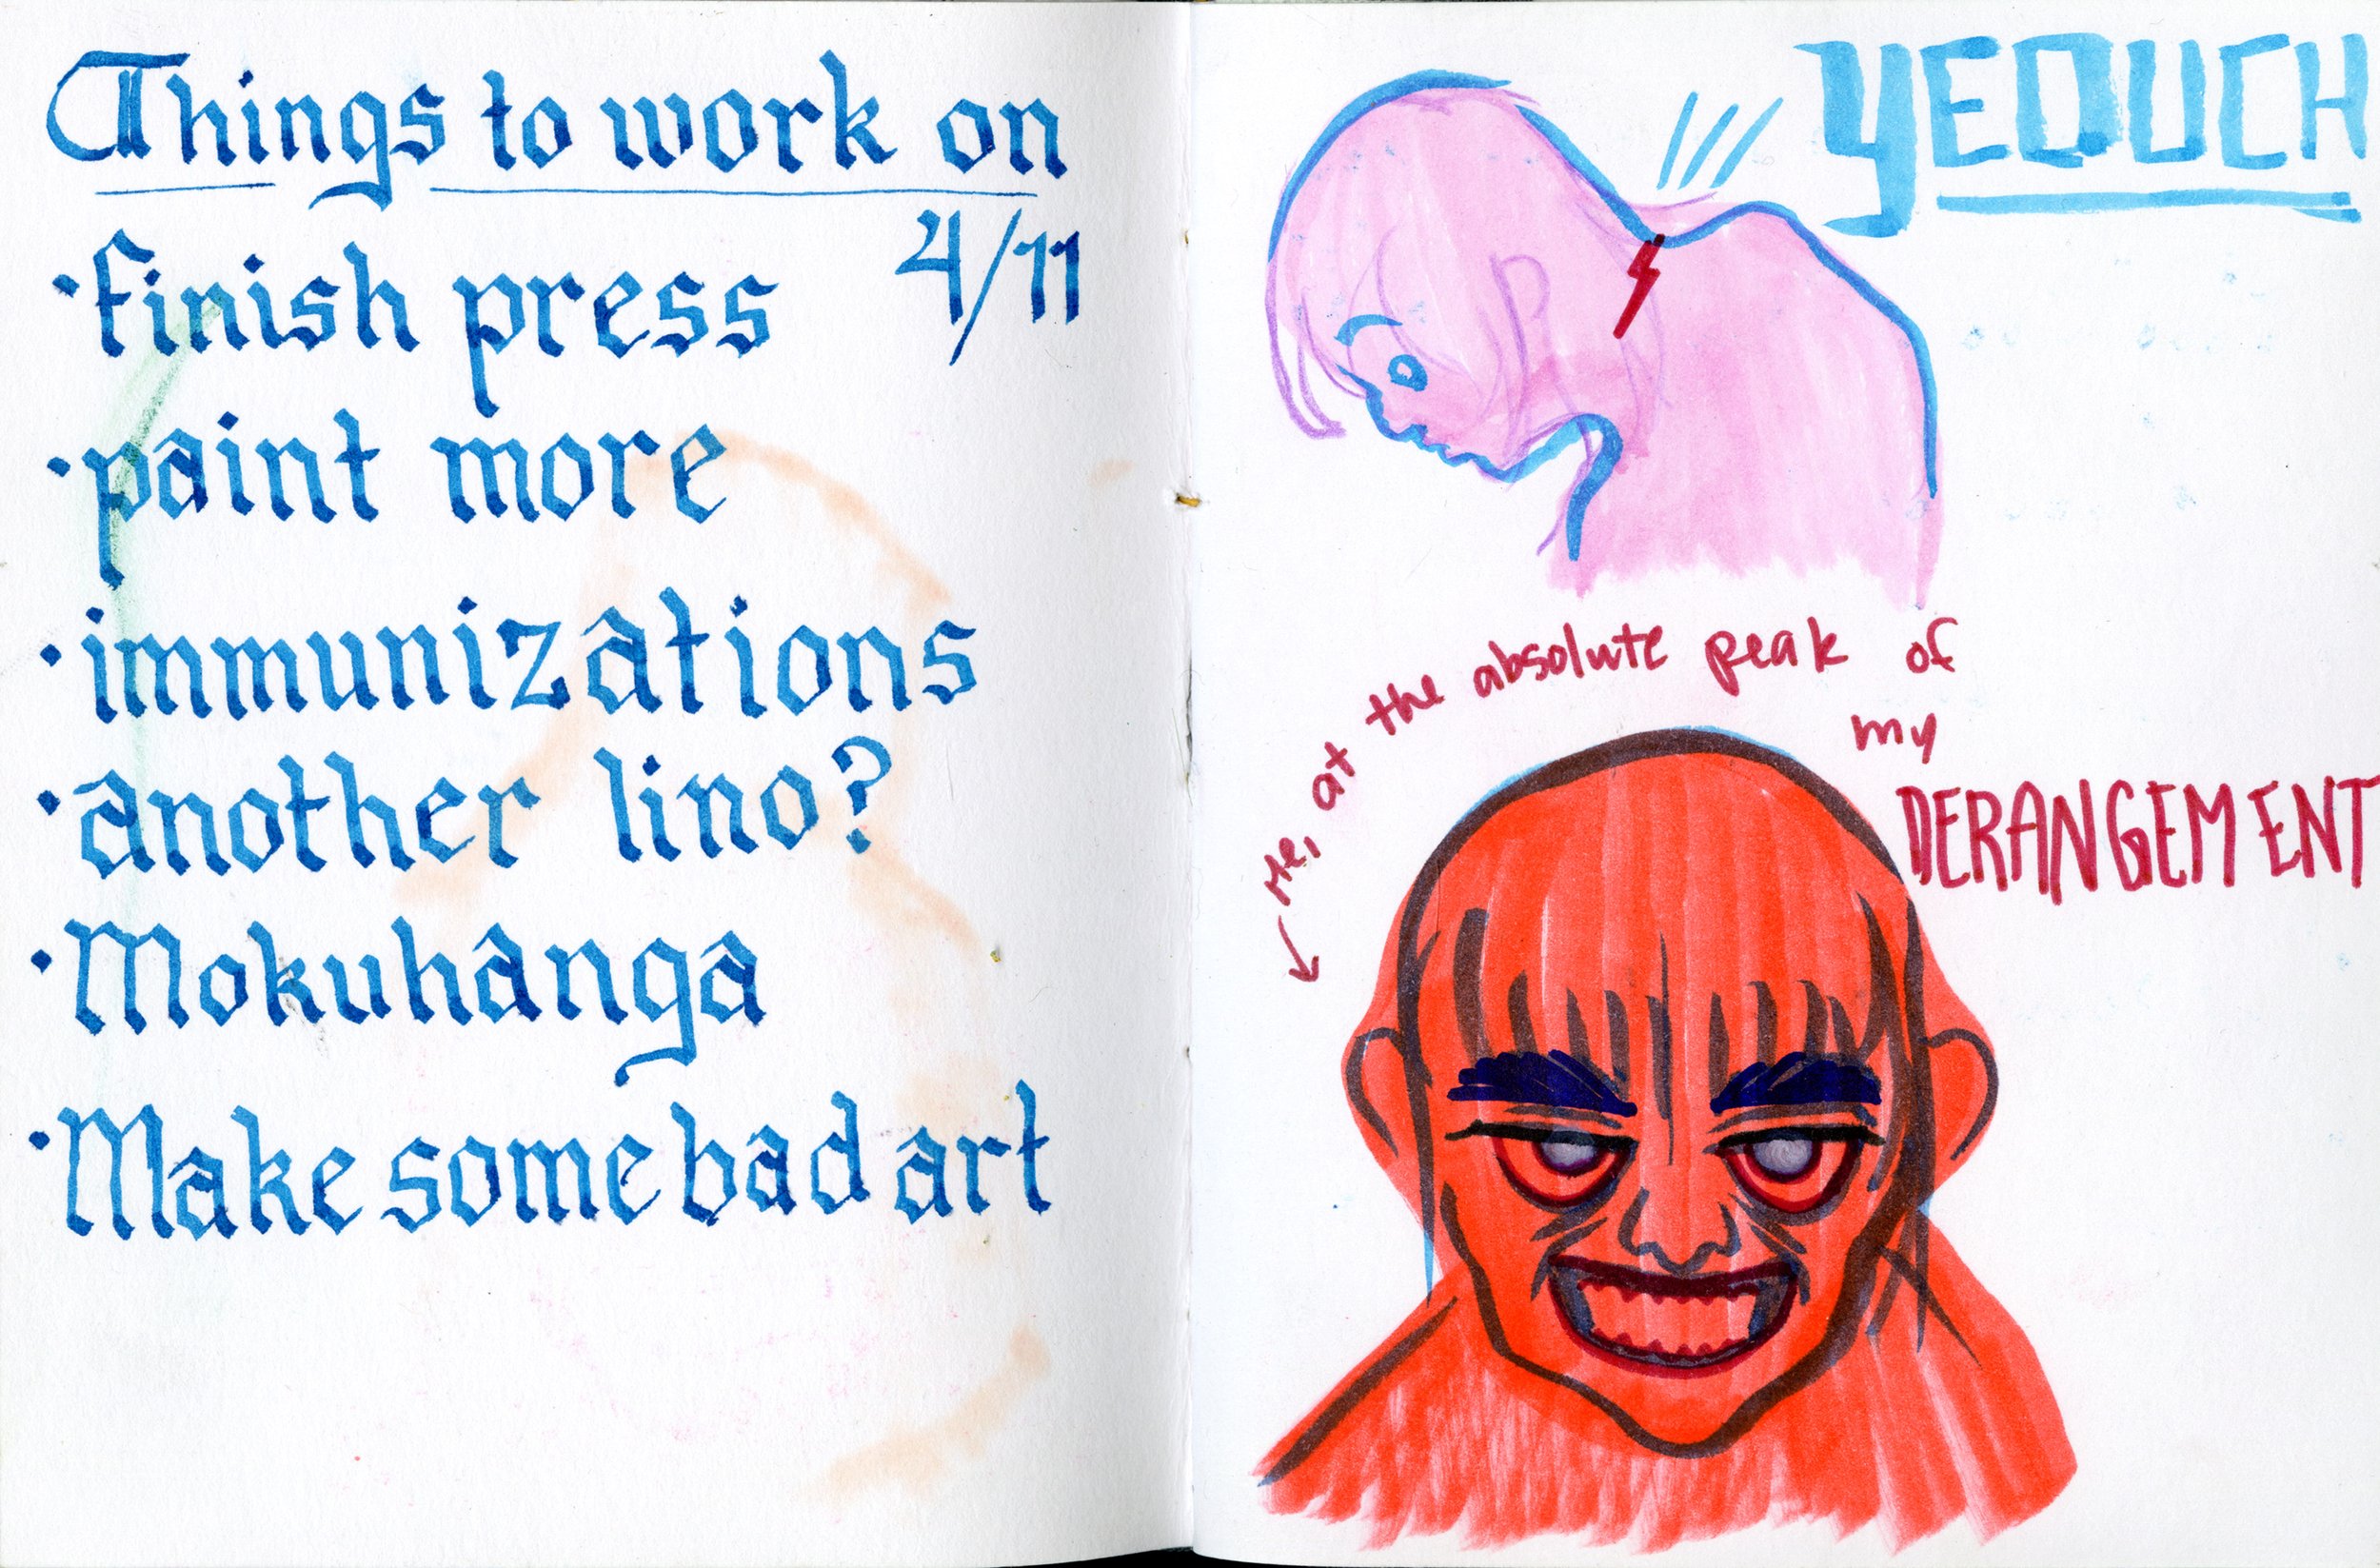 Things to work on
4/11
·finish press
·paint more
·immunizations
·another lino?
·Mokuhanga
·Make some bad art
YEOUCH
Me, at the absolute peak of
my
DERANGEMENT